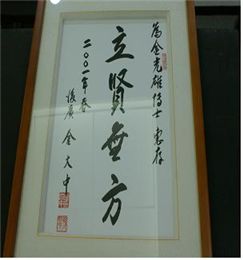 為金光雄博士 惠存
立賢無方
二〇〇一年春
後廣 金大中